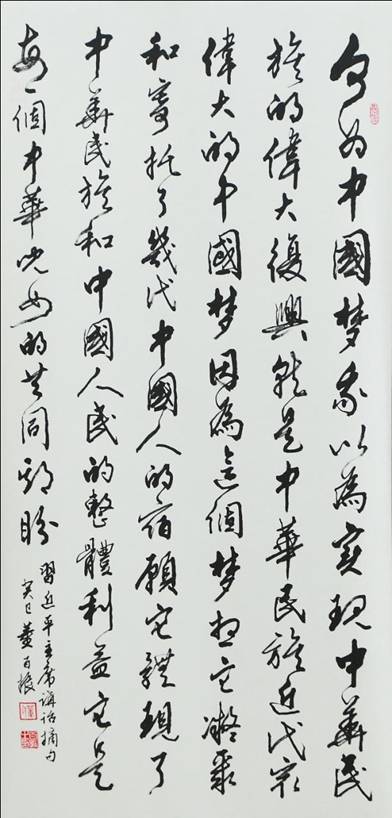 何为中國梦我以為实现中華民
族的偉大復興就是中華民族近代最
偉大的中國梦因為這個梦想它凝聚
和寄托了幾代中國人的宿願它體现了
中華民族和中國人民的整體利益它是
每一個中華児女的共同期盼
習近平主席講話摘句
癸巳董百振